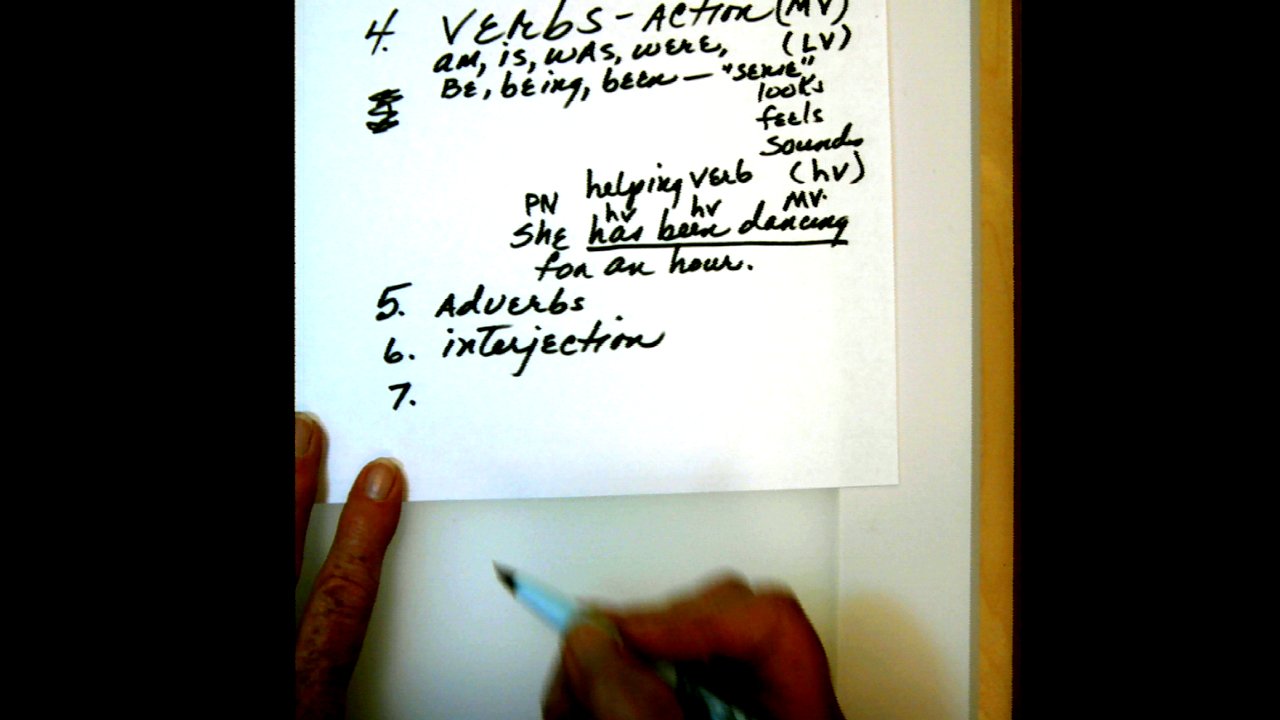 4. VERBS - ACTION (MV)
am, is, was, were, (LV)
BE, being, been - "sense"
looks
feels
sounds
helping verb (hv)
PN hv hv MV.
She has been dancing
for an hour.
5. Adverbs
6. interjection
7.